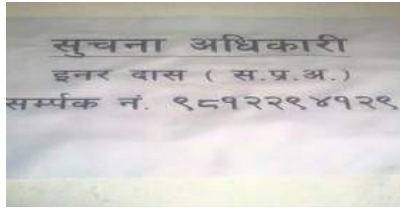 सुचना अधिकारी
इनर दास ( स.प्र.अ.)
सर्म्पक नं. ९८१२२९४१२९